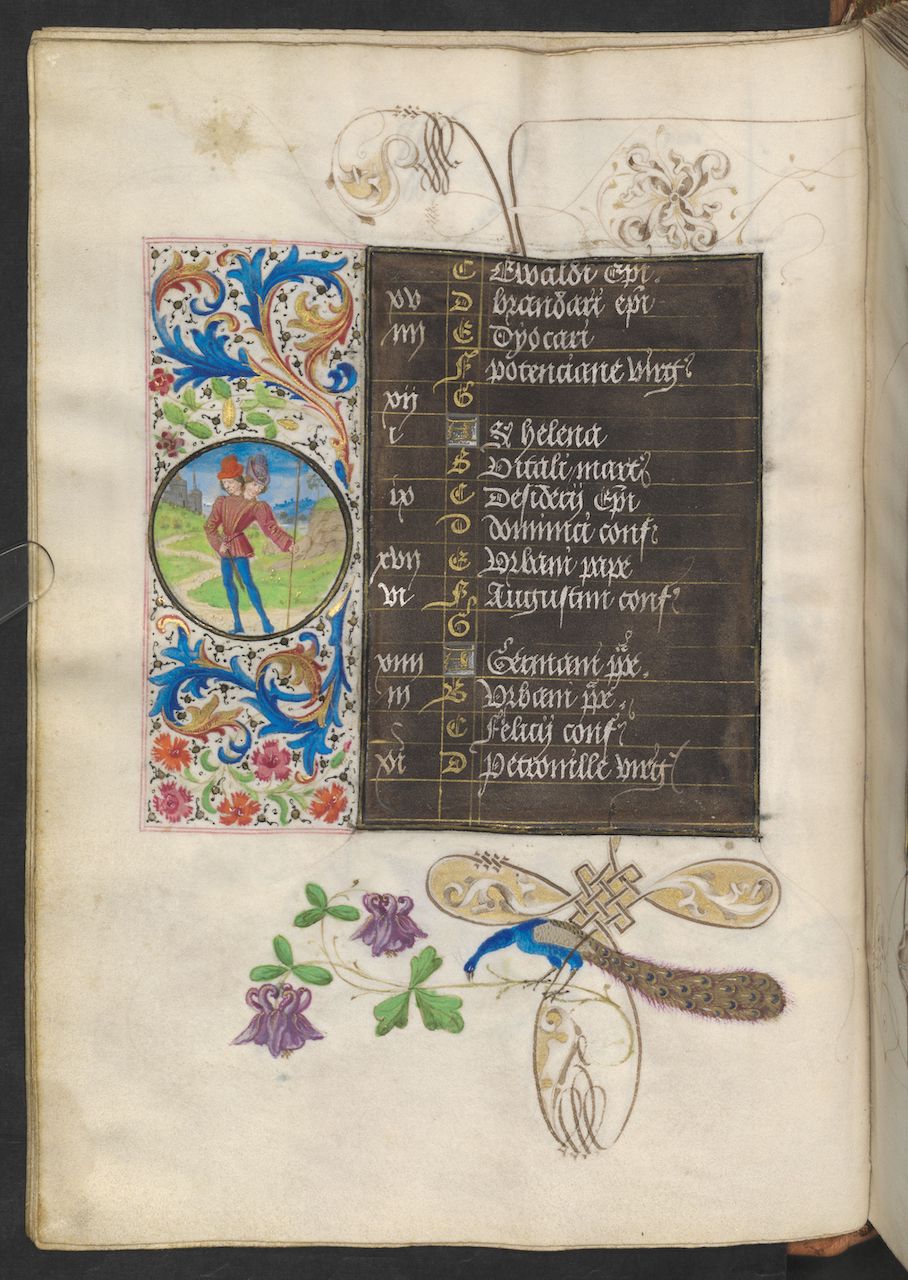 C Ewaldi Epi.
xv D brandari epi
iiij E Dyocari
F potenciane virg
xij G
i A S helena
B Vitali mart
ix C Desiderij Epi
D dominici conf
xvij E Vrbani pape
vi F Augustini conf
G
xiiij A Germani ppe.
iij B Vrbani ppe.
C Felicij conf
xi D Petronille virg